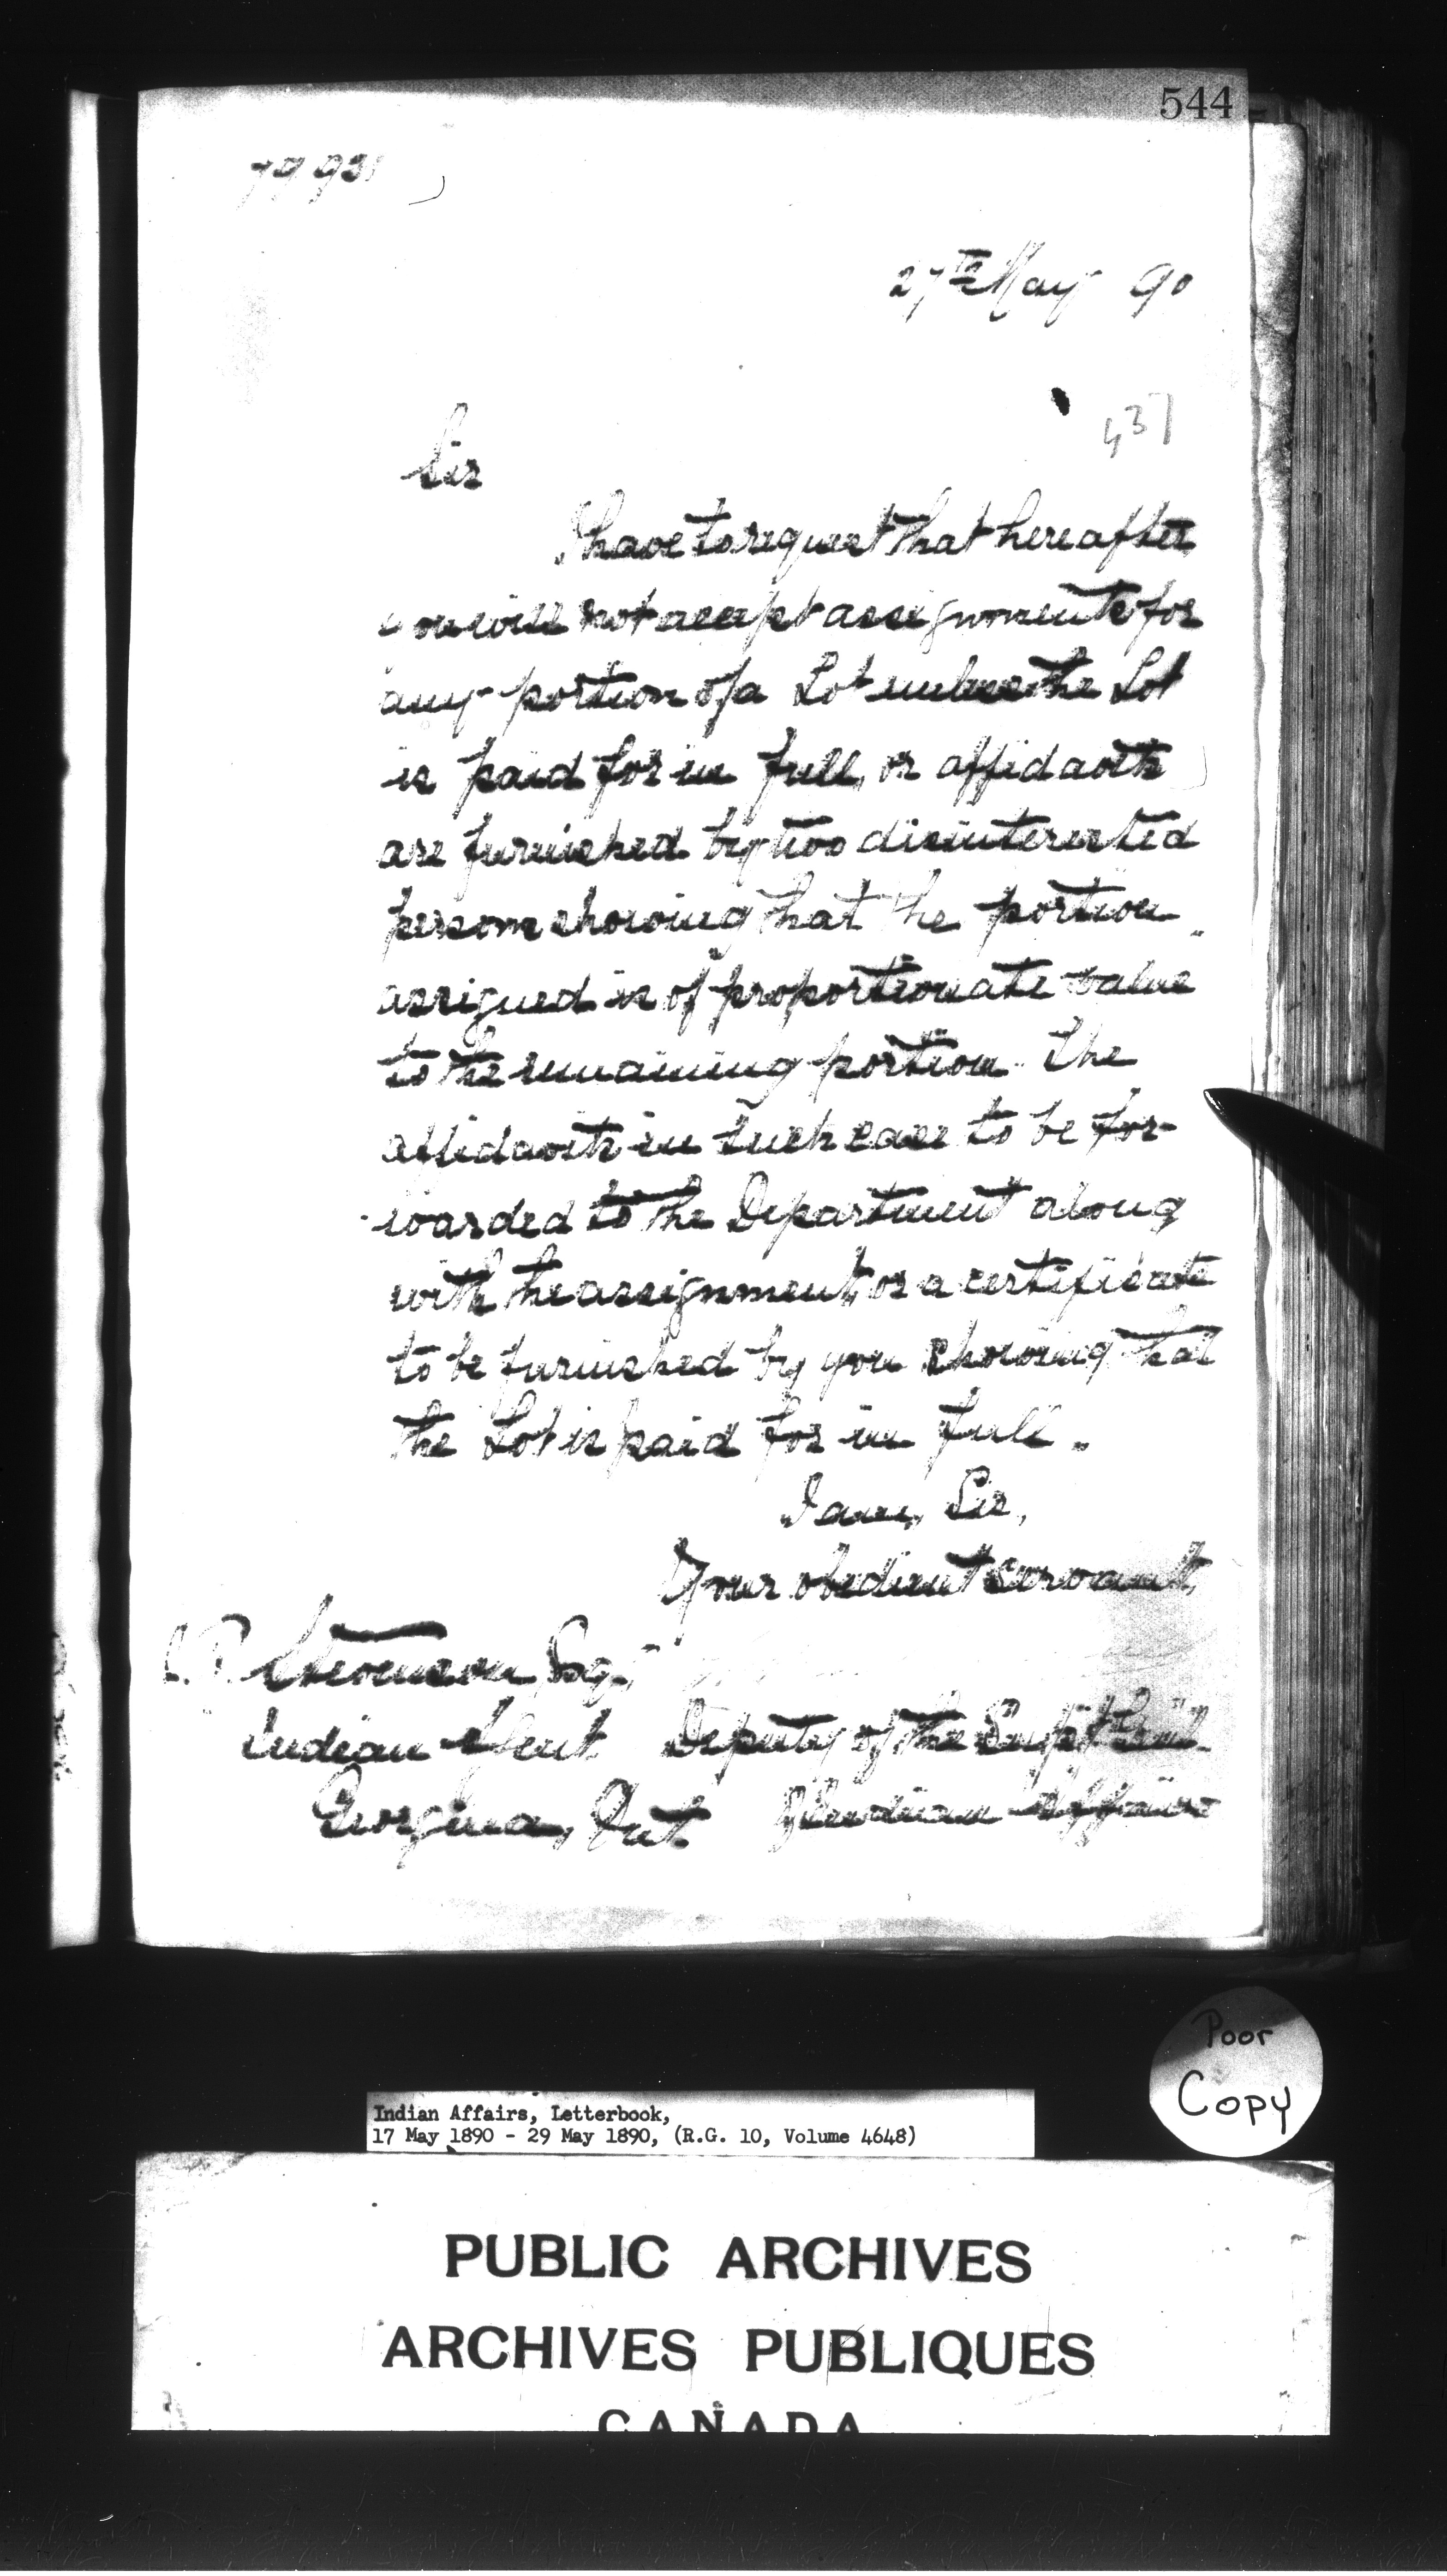 544
27th May 90
437
Sir
I have to request that hereafter
you will not accept assignments for
any portion of a Lot unless the Lot
is paid for in full, or affidavits
are furnished by two disinterested
persons showing that the portion
assigned is of proportionate value
to the remaining portion. The
affidavits in such case to be for-
warded to the Department along
with the assignment, or a certificate
to be furnished by you showing that
the Lot is paid for in full.
I am, Sir,
Your obedient servant,
Stevenson Esq.,
Indian Agent Deputy of the Supt Genl
Georgina, Ont of Indian Affairs
Poor
Copy
Indian Affairs, Letterbook,
17 May 1890 - 29 May 1890, (R.G. 10, Volume 4648)
PUBLIC ARCHIVES
ARCHIVES PUBLIQUES
CANADA